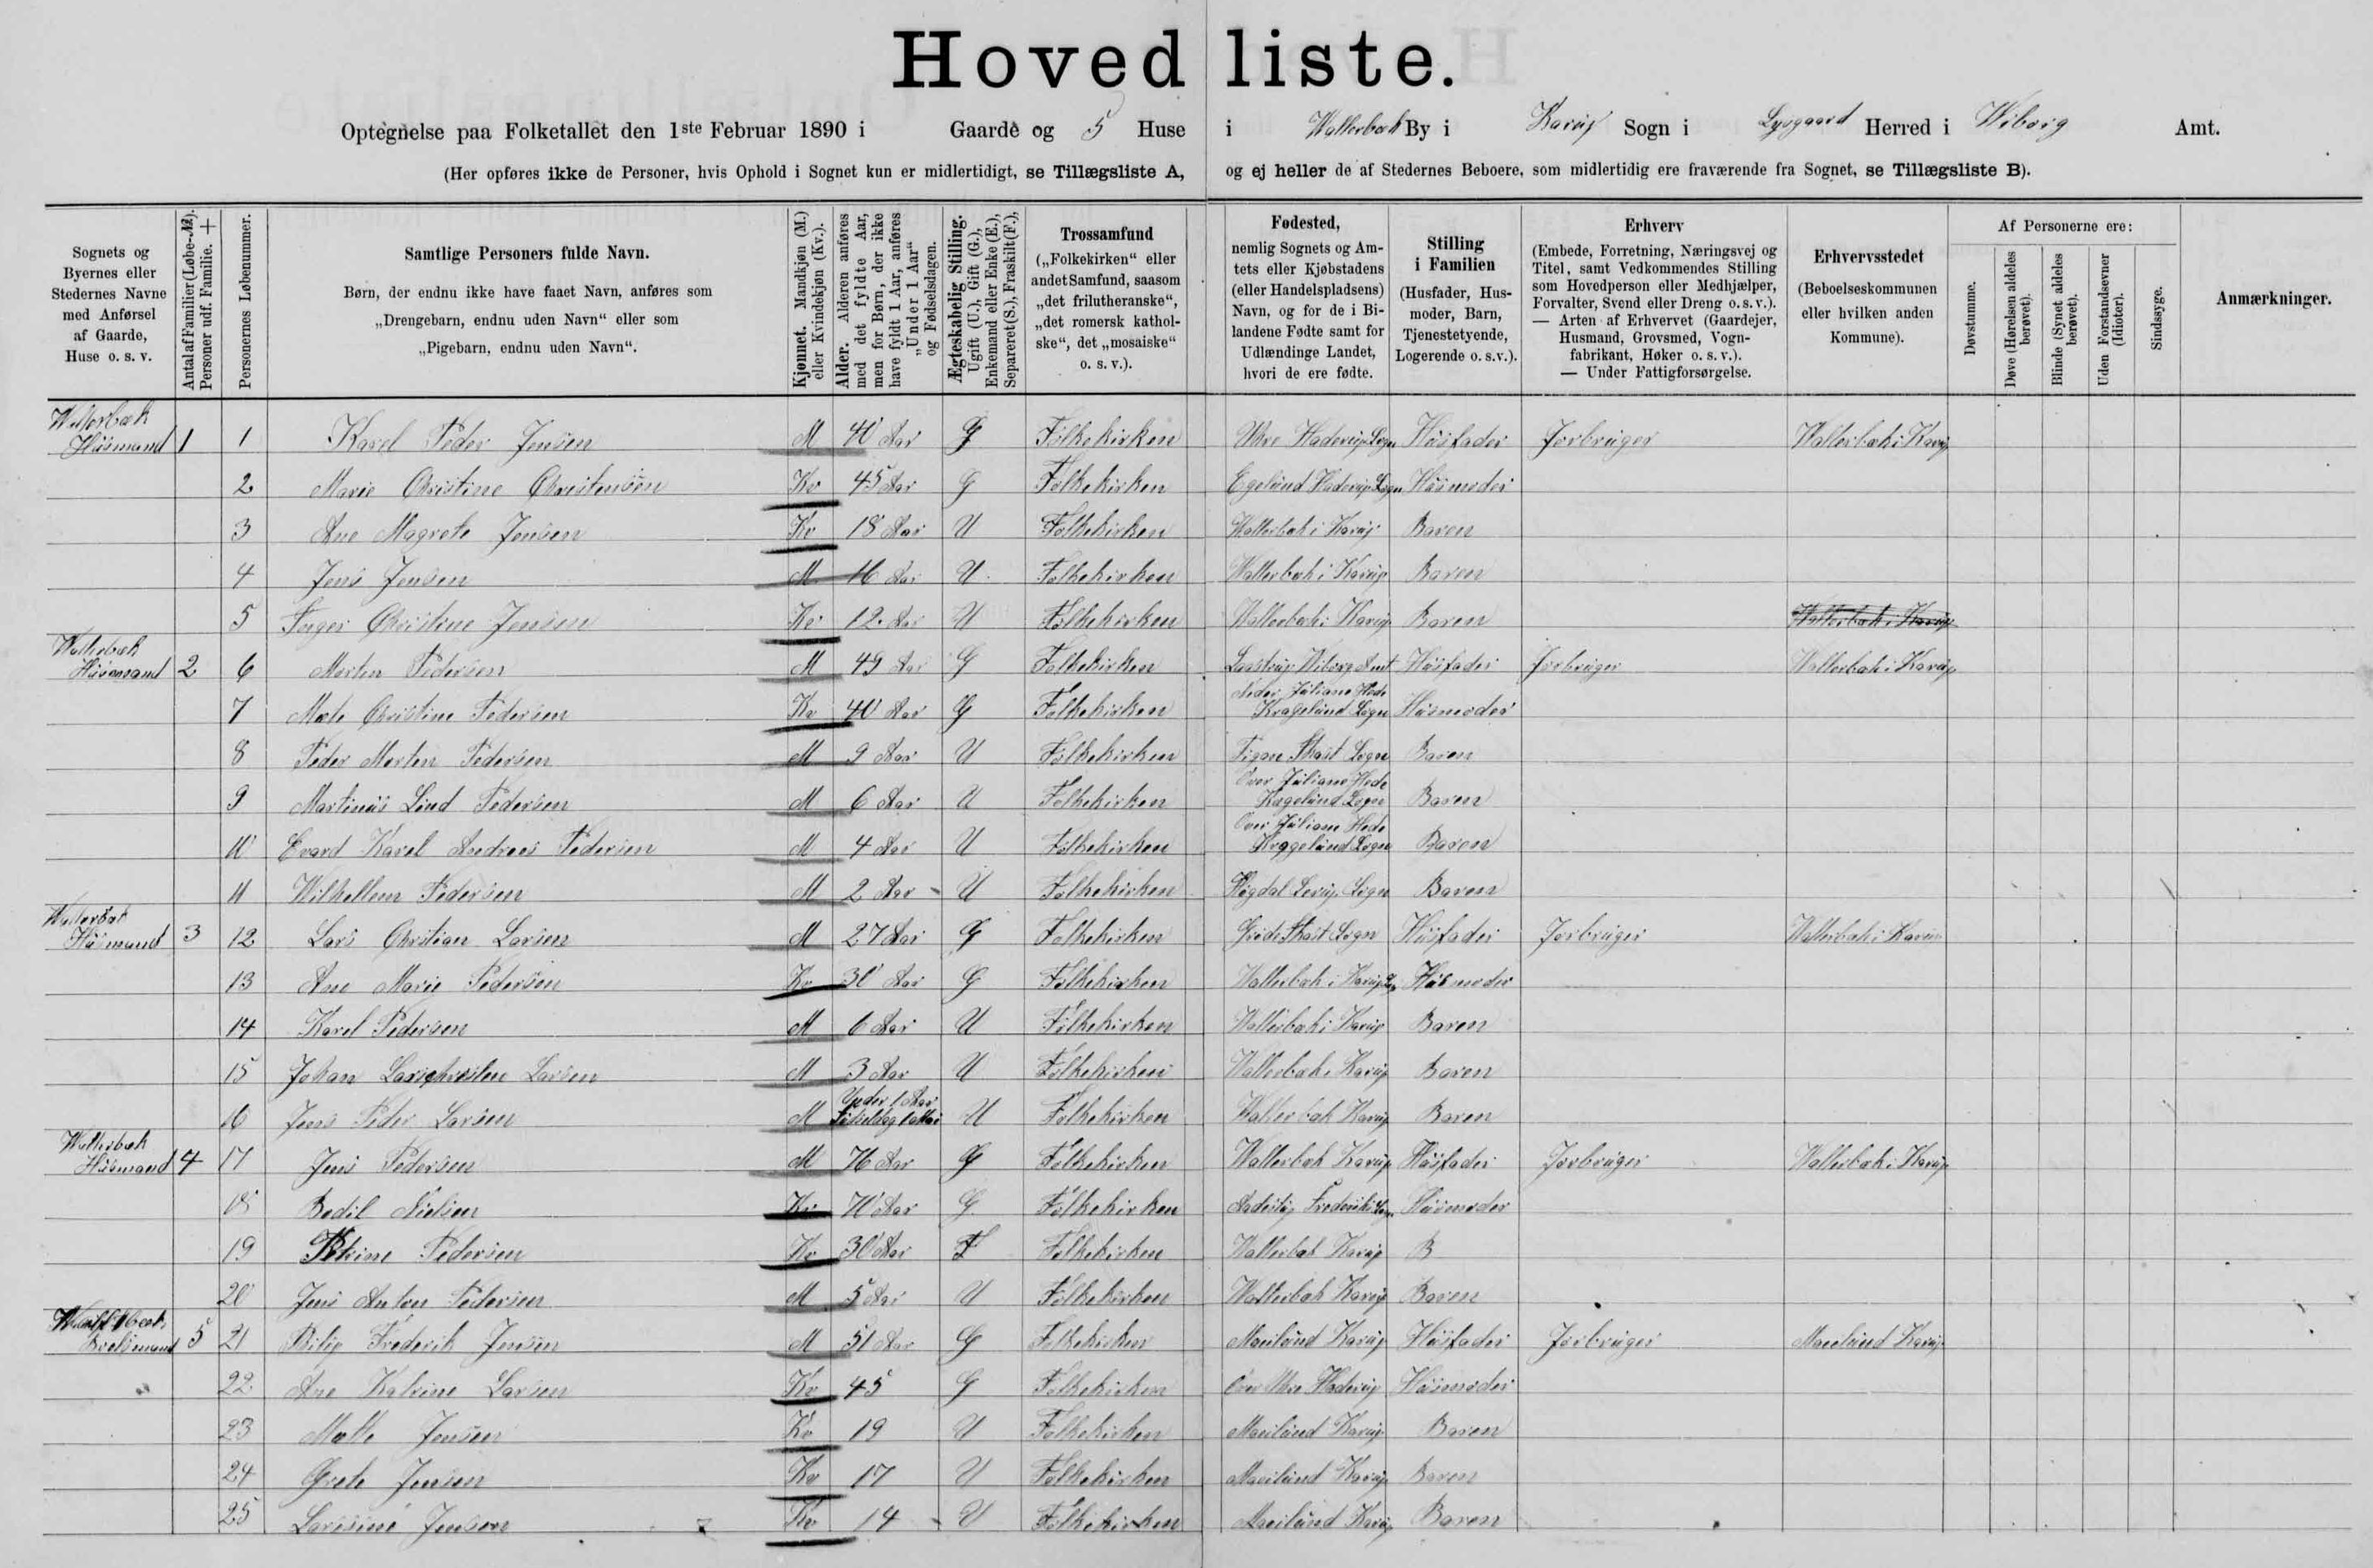 Hovedliste.
Optegnelse paa Folketallet den 1ste Februar 1890 i Gaarde og 5 Huse i Wallerbæk By i Karup Sogn i Lysgaard Herred i Wiborg Amt.
(Her opføres ikke de Personer, hvis Ophold i Sognet kun er midlertidigt, se Tillægsliste A, og ej heller de af Stedernes Beboere, som midlertidig ere fraværende fra Sognet, se Tillægsliste B).
Sognets og
Byernes eller
Stedernes Navne
med Anførsel
af Gaarde,
Huse o. s. v.
Antal af Familier (Løbe-№).
Personer udf. Familie. +
Personernes Løbenummer.
Samtlige Personers fulde Navn.
Børn, der endnu ikke have faaet Navn, anføres som
„Drengebarn, endnu uden Navn“ eller som
„Pigebarn, endnu uden Navn“.
Kjønnet. Mandkjøn (M.)
eller Kvindekjøn (Kv.).
Alder. Alderen anføres
med det fyldte Aar,
men for Børn, der ikke
have fyldt 1 Aar, anføres
„Under 1 Aar“
og Fødselsdagen.
Ægteskabelig Stilling.
Ugift (U.), Gift (G.),
Enkemand eller Enke (E.),
Separeret (S.), Fraskilt (F.).
Trossamfund
(„Folkekirken“ eller
andet Samfund, saasom
„det frilutheranske“,
„det romersk kathol-
ske“, det „mosaiske“
o. s. v.).
Fødested,
nemlig Sognets og Am-
tets eller Kjøbstadens
(eller Handelspladsens)
Navn, og for de i Bi-
landene Fødte samt for
Udlændinge Landet,
hvori de ere fødte.
Stilling
i Familien
(Husfader, Hus-
moder, Barn,
Tjenestetyende,
Logerende o. s. v.).
Erhverv
(Embede, Forretning, Næringsvej og
Titel, samt Vedkommendes Stilling
som Hovedperson eller Medhjælper,
Forvalter, Svend eller Dreng o. s. v.).
— Arten af Erhvervet (Gaardejer,
Husmand, Grovsmed, Vogn-
fabrikant, Høker o. s. v.).
— Under Fattigforsørgelse.
Erhvervsstedet
(Beboelseskommunen
eller hvilken anden
Kommune).
Af Personerne ere:
Døvstumme.
Døve (Hørelsen aldeles
berøvet).
Blinde (Synet aldeles
berøvet).
Uden Forstandsevner
(Idioter).
Sindssyge.
Anmærkninger.
Wallerbæk
Húsmand 1 1 Karel Peder Jensen M 40 Aar G Folkekirken Uhre Haderup Sogn Húsfader Jorbrúger Wallerbæk i Karup
2 Marie Christine Christensen Kv 45 Aar G Folkekirken Egelund Haderup Sogn Húsmoder
3 Ane Magrete Jensen Kv 18 Aar U Folkekirken Wallerbæk i Karup Baren
4 Jens Jensen M 16 Aar U Folkekirken Wallerbæk i Karup Baren
5 Inger Christine Jensen Kv 12 Aar U Folkekirken Wallerbæk i Karup Baren Wallerbæk i Karup
Wallerbæk
Húsmand 2 6 Morten Pedersen M 49 Aar G Folkekirken Laastrup Wiborg Amt Húsfader Jorbrúger Wallerbæk i Karup
Neder Júliane Hede
7 Mete Christine Pedersen Kv 40 Aar G Folkekirken Kragelund Sogn Húsmoder
8 Peder Morten Pedersen M 9 Aar U Folkekirken Thast Sogn Baren
Over Júliane Hede
9 Martinús Lind Pedersen M 6 Aar U Folkekirken Kragelund Sogn Baren
Over Júliane Hede
10 Evard Karel Andrees Pedersen M 4 Aar U Folkekirken Kragelund Sogn Baren
11 Wilhellem Pedersen M 2 Aar U Folkekirken Sogn Baren
Wallerbæk
Húsmand 3 12 Lars Christian Larsen M 27 Aar G Folkekirken Grode Thast Sogn Húsfader Jorbrúger Wallerbæk i Karup
13 Ane Marie Pedersen Kv 30 Aar G Folkekirken Wallerbæk i Karup Húsmoder
14 Karel Pedersen M 6 Aar U Folkekirken Wallerbæk i Karup Baren
15 Johan Larschresten Larsen M 3 Aar U Folkekirken Wallerbæk i Karup Baren
Under 1 Aar
16 Jens Peder Larsen M U Folkekirken Wallerbæk Karup Baren
Wallerbæk
Húsmand 4 17 Jens Pedersen M 76 Aar G Folkekirken Wallerbæk Karup Húsfader Jorbrúger Wallerbæk i Karup
18 Bodil Nielsen Kv 70 Aar G Folkekirken Frederiks Sogn Húsmoder
19 Pedersen Kv 30 Aar F Folkekirken Wallerbæk Karup B
20 Jens Anton Pedersen M 5 Aar U Folkekirken Wallerbæk Karup Baren
5 21 Filip Frederik Jensen M 51 Aar G Folkekirken Marilund Karup Húsfader Jorbrúger Marilund Karup
22 Ane Katrine Larsen Kv 45 G Folkekirken Over Uhre Haderup Húsmoder
23 Mette Jensen Kv 19 U Folkekirken Marilund Karup Baren
24 Grete Jensen Kv 17 U Folkekirken Marilund Karup Baren
25 Larssine Jensen Kv 14 U Folkekirken Marilund Karup Baren